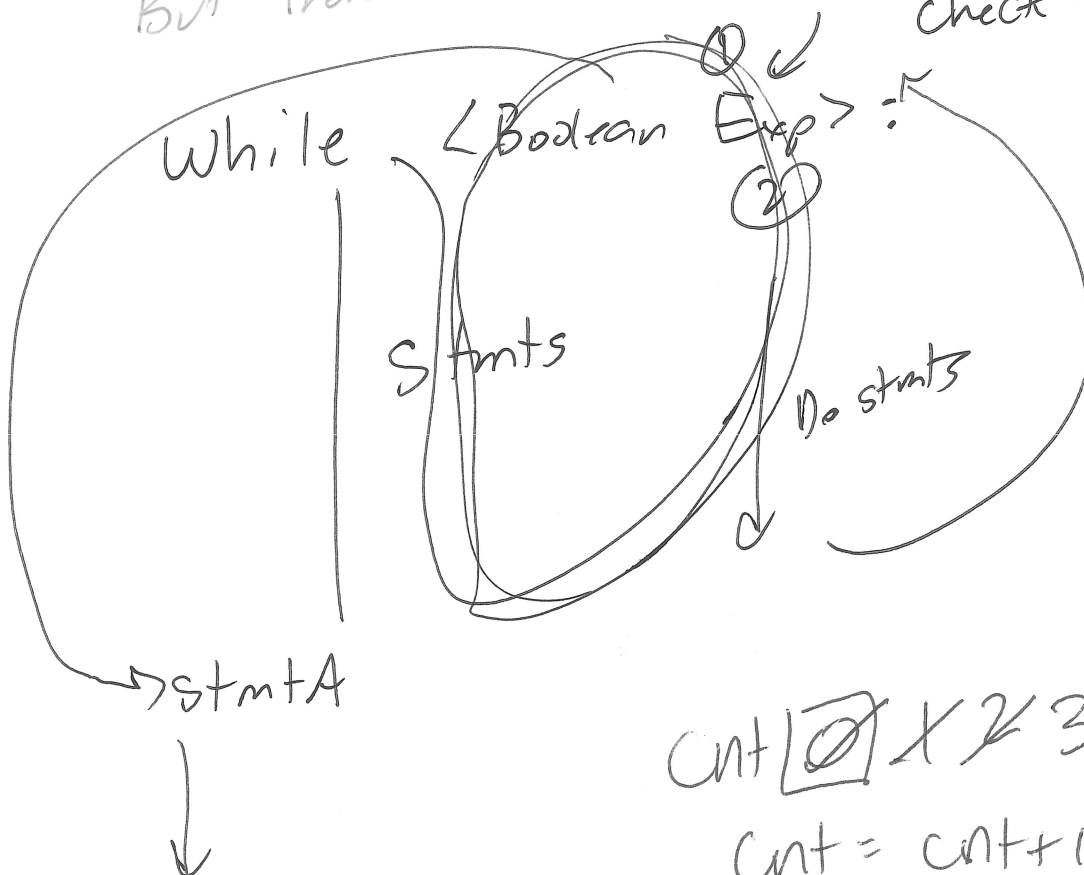 But
Check
①
While <Boolean Exp> :
②
Stmts
Do stmts
StmtA
Cnt 0 1 2 3
Cnt = cnt + 1